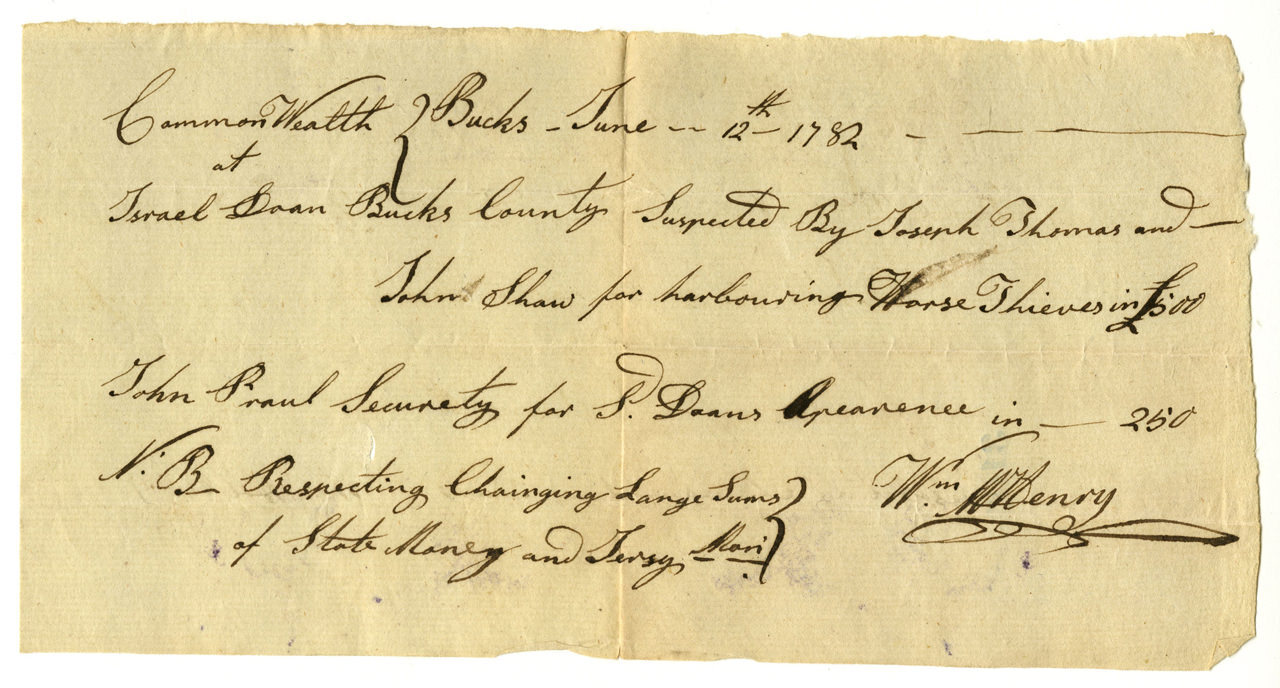 CommonWealth } Bucks - June -- 12th - 1782 - - -
at
Israel Doan Bucks County Suspected By Joseph Thomas and -
John Shaw for harbouring Horse Thieves in £500
John Praul Securety for Sd. Doans Apearence in - 250
N: B Respecting Chainging Large Sums }
of State Money and Jersy Mon: }
Wm. McHenry